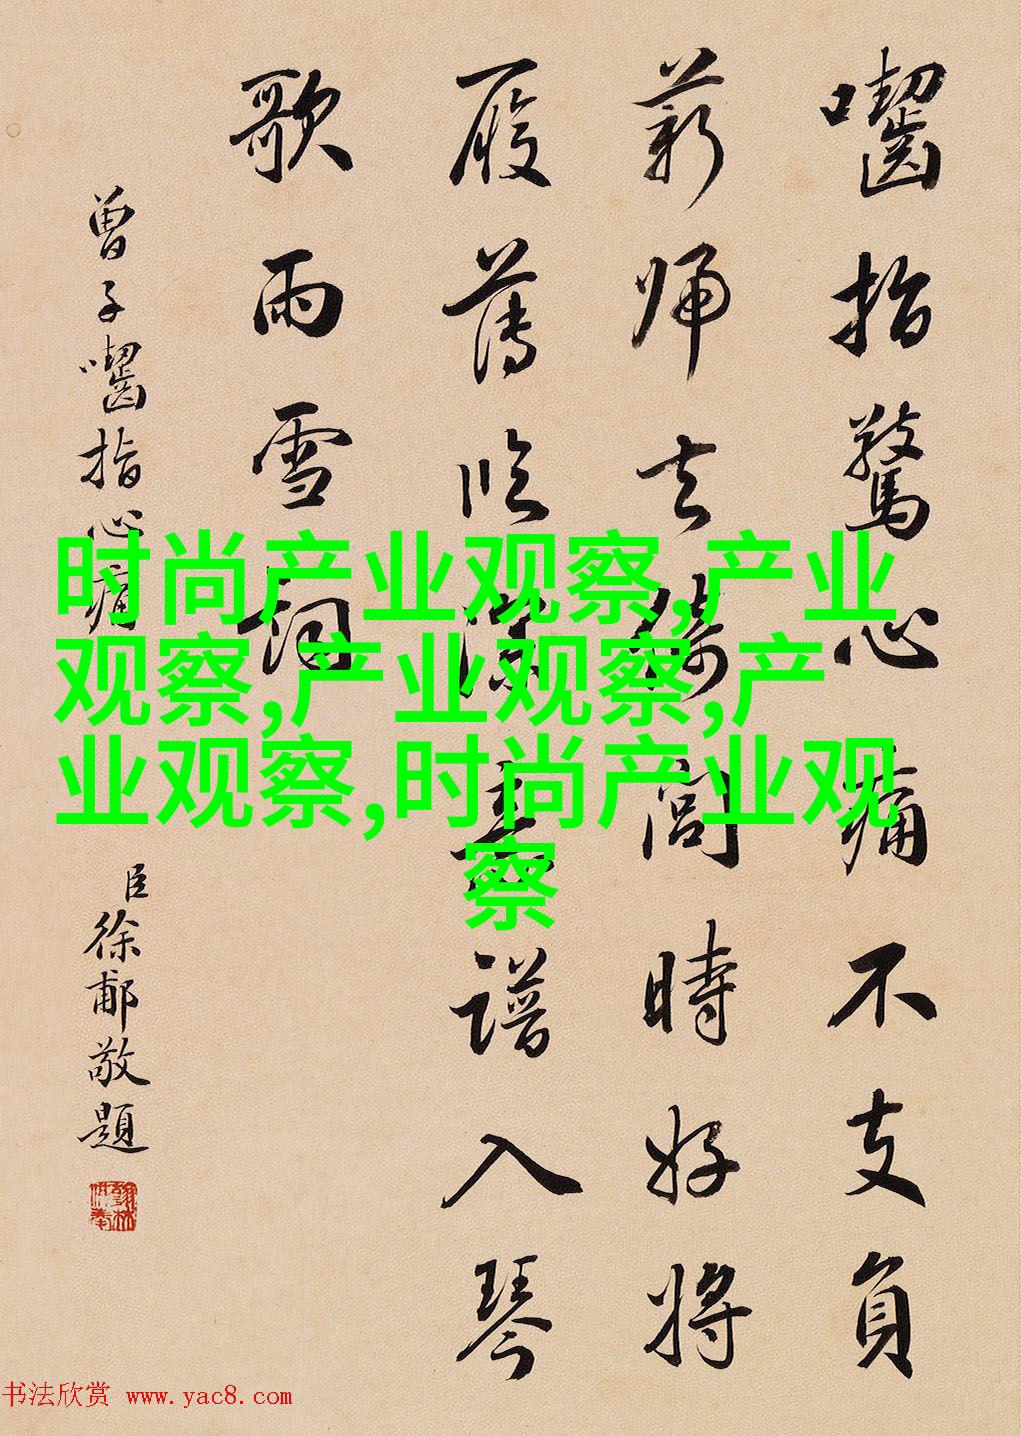 囓指驚心痛不支負
薪歸去倚閭時好將
履薄臨深譜入琴
歌雨雪詞
曾子囓指心痛
臣徐郙敬題
时尚产业观察,产业
观察,产业观察,产
业观察,时尚产业观
察
书法欣赏 www.yac8.com